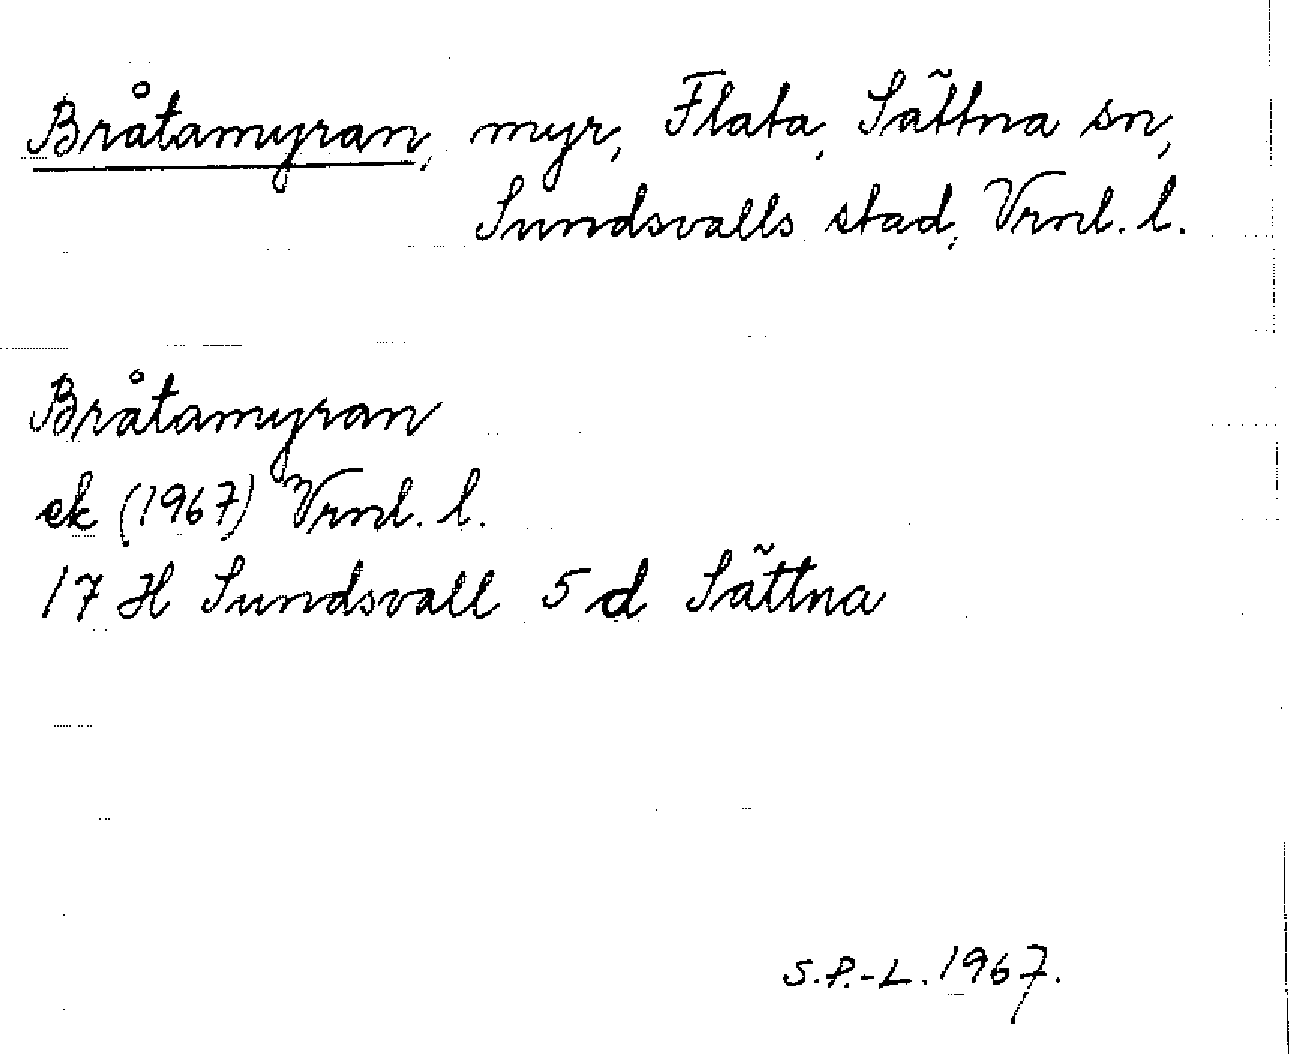 Bråtamyran, myr, Flata, Sättna sn,
Sundsvalls stad, Vrnl. l.
Bråtamyran
ek (1967) Vrnl. l.
17 H Sundsvall 5 d Sättna
S.P.-L. 1967.